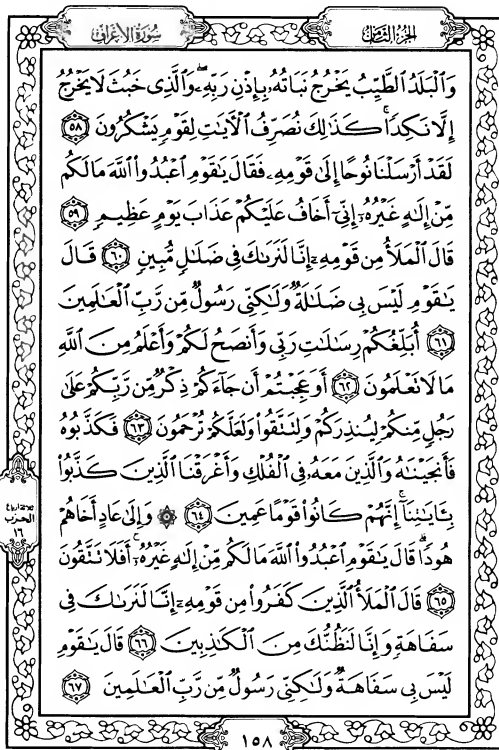 سُورَةُ الأَعْرَافِ
الجُزْءُ الثَّامِنُ
وَٱلۡبَلَدُ ٱلطَّيِّبُ يَخۡرُجُ نَبَاتُهُۥ بِإِذۡنِ رَبِّهِۦۖ وَٱلَّذِي خَبُثَ لَا يَخۡرُجُ
إِلَّا نَكِدٗاۚ كَذَٰلِكَ نُصَرِّفُ ٱلۡأٓيَٰتِ لِقَوۡمٖ يَشۡكُرُونَ ٥٨
لَقَدۡ أَرۡسَلۡنَا نُوحًا إِلَىٰ قَوۡمِهِۦ فَقَالَ يَٰقَوۡمِ ٱعۡبُدُواْ ٱللَّهَ مَا لَكُم
مِّنۡ إِلَٰهٍ غَيۡرُهُۥٓ إِنِّيٓ أَخَافُ عَلَيۡكُمۡ عَذَابَ يَوۡمٍ عَظِيمٖ ٥٩
قَالَ ٱلۡمَلَأُ مِن قَوۡمِهِۦٓ إِنَّا لَنَرَىٰكَ فِي ضَلَٰلٖ مُّبِينٖ ٦٠ قَالَ
يَٰقَوۡمِ لَيۡسَ بِي ضَلَٰلَةٞ وَلَٰكِنِّي رَسُولٞ مِّن رَّبِّ ٱلۡعَٰلَمِينَ
٦١ أُبَلِّغُكُمۡ رِسَٰلَٰتِ رَبِّي وَأَنصَحُ لَكُمۡ وَأَعۡلَمُ مِنَ ٱللَّهِ
مَا لَا تَعۡلَمُونَ ٦٢ أَوَعَجِبۡتُمۡ أَن جَآءَكُمۡ ذِكۡرٞ مِّن رَّبِّكُمۡ عَلَىٰ
رَجُلٖ مِّنكُمۡ لِيُنذِرَكُمۡ وَلِتَتَّقُواْ وَلَعَلَّكُمۡ تُرۡحَمُونَ ٦٣ فَكَذَّبُوهُ
فَأَنجَيۡنَٰهُ وَٱلَّذِينَ مَعَهُۥ فِي ٱلۡفُلۡكِ وَأَغۡرَقۡنَا ٱلَّذِينَ كَذَّبُواْ
بِـَٔايَٰتِنَآۚ إِنَّهُمۡ كَانُواْ قَوۡمًا عَمِينَ ٦٤ ۞ وَإِلَىٰ عَادٍ أَخَاهُمۡ
هُودٗاۚ قَالَ يَٰقَوۡمِ ٱعۡبُدُواْ ٱللَّهَ مَا لَكُم مِّنۡ إِلَٰهٍ غَيۡرُهُۥٓۚ أَفَلَا تَتَّقُونَ
٦٥ قَالَ ٱلۡمَلَأُ ٱلَّذِينَ كَفَرُواْ مِن قَوۡمِهِۦٓ إِنَّا لَنَرَىٰكَ فِي
سَفَاهَةٖ وَإِنَّا لَنَظُنُّكَ مِنَ ٱلۡكَٰذِبِينَ ٦٦ قَالَ يَٰقَوۡمِ
لَيۡسَ بِي سَفَاهَةٞ وَلَٰكِنِّي رَسُولٞ مِّن رَّبِّ ٱلۡعَٰلَمِينَ ٦٧
الحزب
١٦
١٥٨